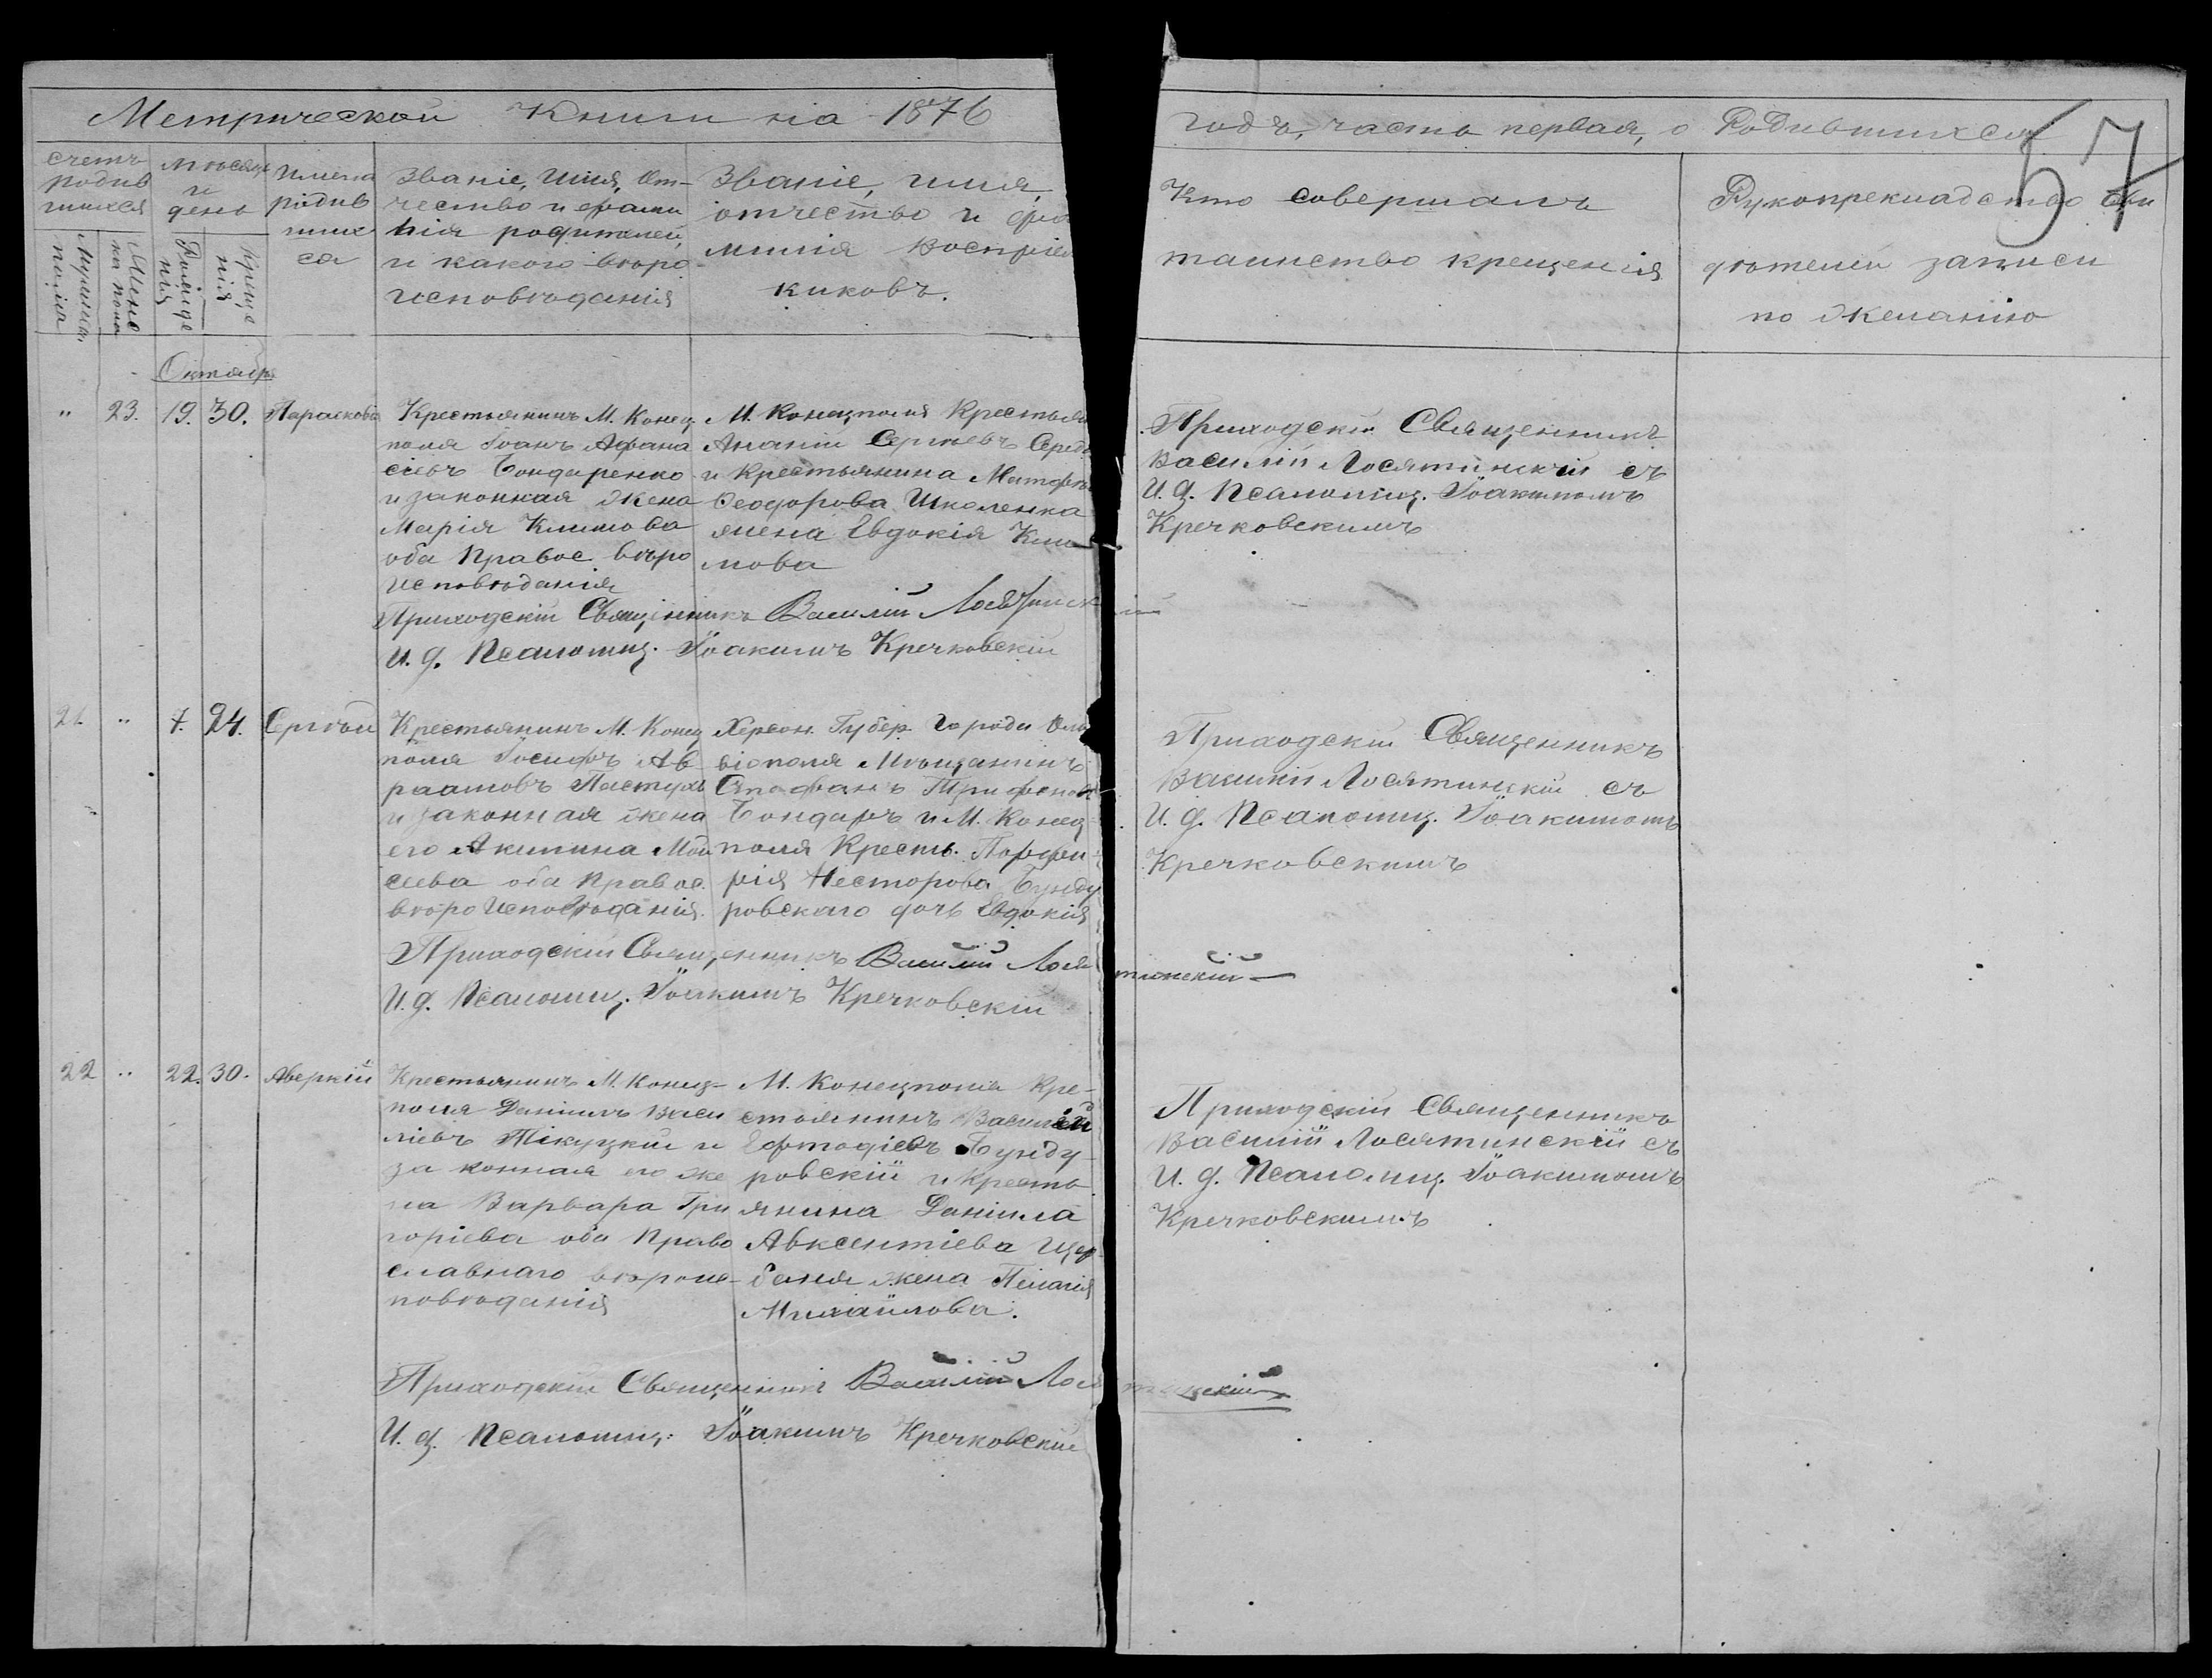 Метрической Книги на 1876 годъ, часть первая, о Родившихся
57
счетъ родив шихся
Мужеска пола
Женс ка пола
Мѣсяцъ и день
Рожде нія
Креще нія
Имена родив ших ся
Званіе, Имя, От-
чество и фами
лія родителей,
и какого вѣро
исповѣданія
Званіе, имя,
отчество и фа
милія воспріем
никовъ.
Кто совершалъ
таинство крещенія
Рукоприкладство сви
дѣтелей записи
по желанію
Октябрь
" 23. 19. 30. Параскова
Крестьянинъ М. Конец
поля Іоанъ Афана
сіевъ Бондаренко
и законная жена
Марія Климова
оба Правос. вѣро
исповѣданія
М. Конецполя Крестьян
Ананій Сергѣевъ Серед
и Крестьянина
Феодорова Школенка
жена Евдокія Кли
мова
Приходскій Священникъ
Василій Лосятинскій съ
И. д. Псаломщ. Іоакимомъ
Кречковскимъ
Приходскій Священникъ Василій Лосятинскій
И. д. Псаломщ. Іоакимъ Кречковскій
21. " 7. 24. Сергѣй
Крестьянинъ М. Конец
поля Іосифъ Ав
раамовъ Пастухъ
и законная жена
его Акилина Мой
сеева оба Правос.
вѣро Исповѣданія.
Херсон. Губер. Города Оль
віополя Мѣщанинъ
Стефанъ Трифонов
Бондарь и М. Конец
поля Кресть. Порфи
рія Несторова Бунду
ровскаго дочь Евдокія
Приходскій Священникъ
Василій Лосятинскій съ
И. д. Псаломщ. Іоакимомъ
Кречковскимъ
Приходскій Священникъ Василій Лосятинскій
И. д. Псаломщ. Іоакимъ Кречковскій
22 " 22. 30. Аверкій
Крестьянинъ М. Конец-
поля Даніилъ Васи
ліевъ Тікуцкій и
законная его же
на Варвара Гри
горіева оба Право
славнаго вѣроис-
повѣданія
М. Конецполя Кре-
стьянинъ Василій
Ефтодіевъ Бунду-
ровскій и Кресть
янина Даніила
Авксентіева Щер
баня жена Пелагія
Михайлова.
Приходскій Священникъ
Василій Лосятинскій съ
И. д. Псаломщ. Іоакимомъ
Кречковскимъ
Приходскій Священникъ Василій Лосятинскій
И. д. Псаломщ. Іоакимъ Кречковскій